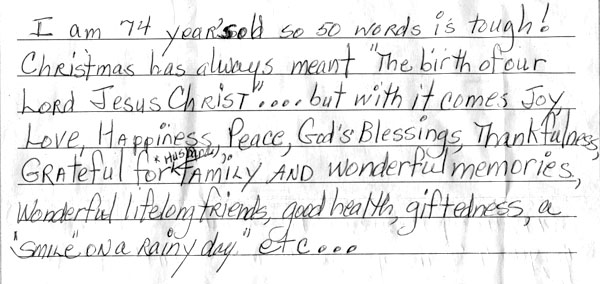 I am 74 year'sold so 50 words is tough!
Christmas has always meant "The birth of our
LORD JESUS CHRIST".... but with it comes Joy,
Love, Happiness, Peace, God's Blessings, Thankfulness,
GRAteful for *Husband, FAMILY AND wonderful memories,
Wonderful lifelong friends, good health, giftedness, a
"smile" on a Rainy day" etc...